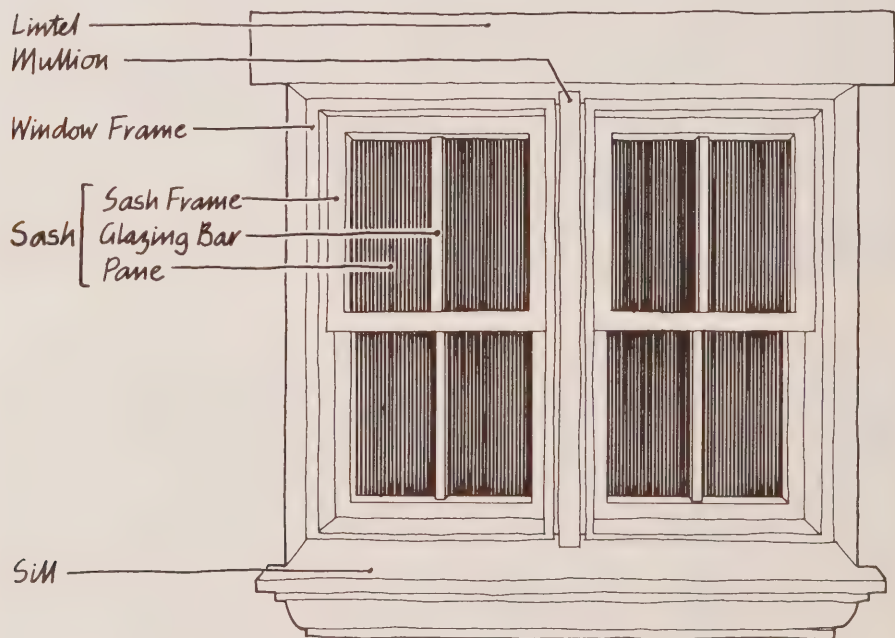 Lintel
Mullion
Window Frame
Sash
Sash Frame
Glazing Bar
Pane
Sill